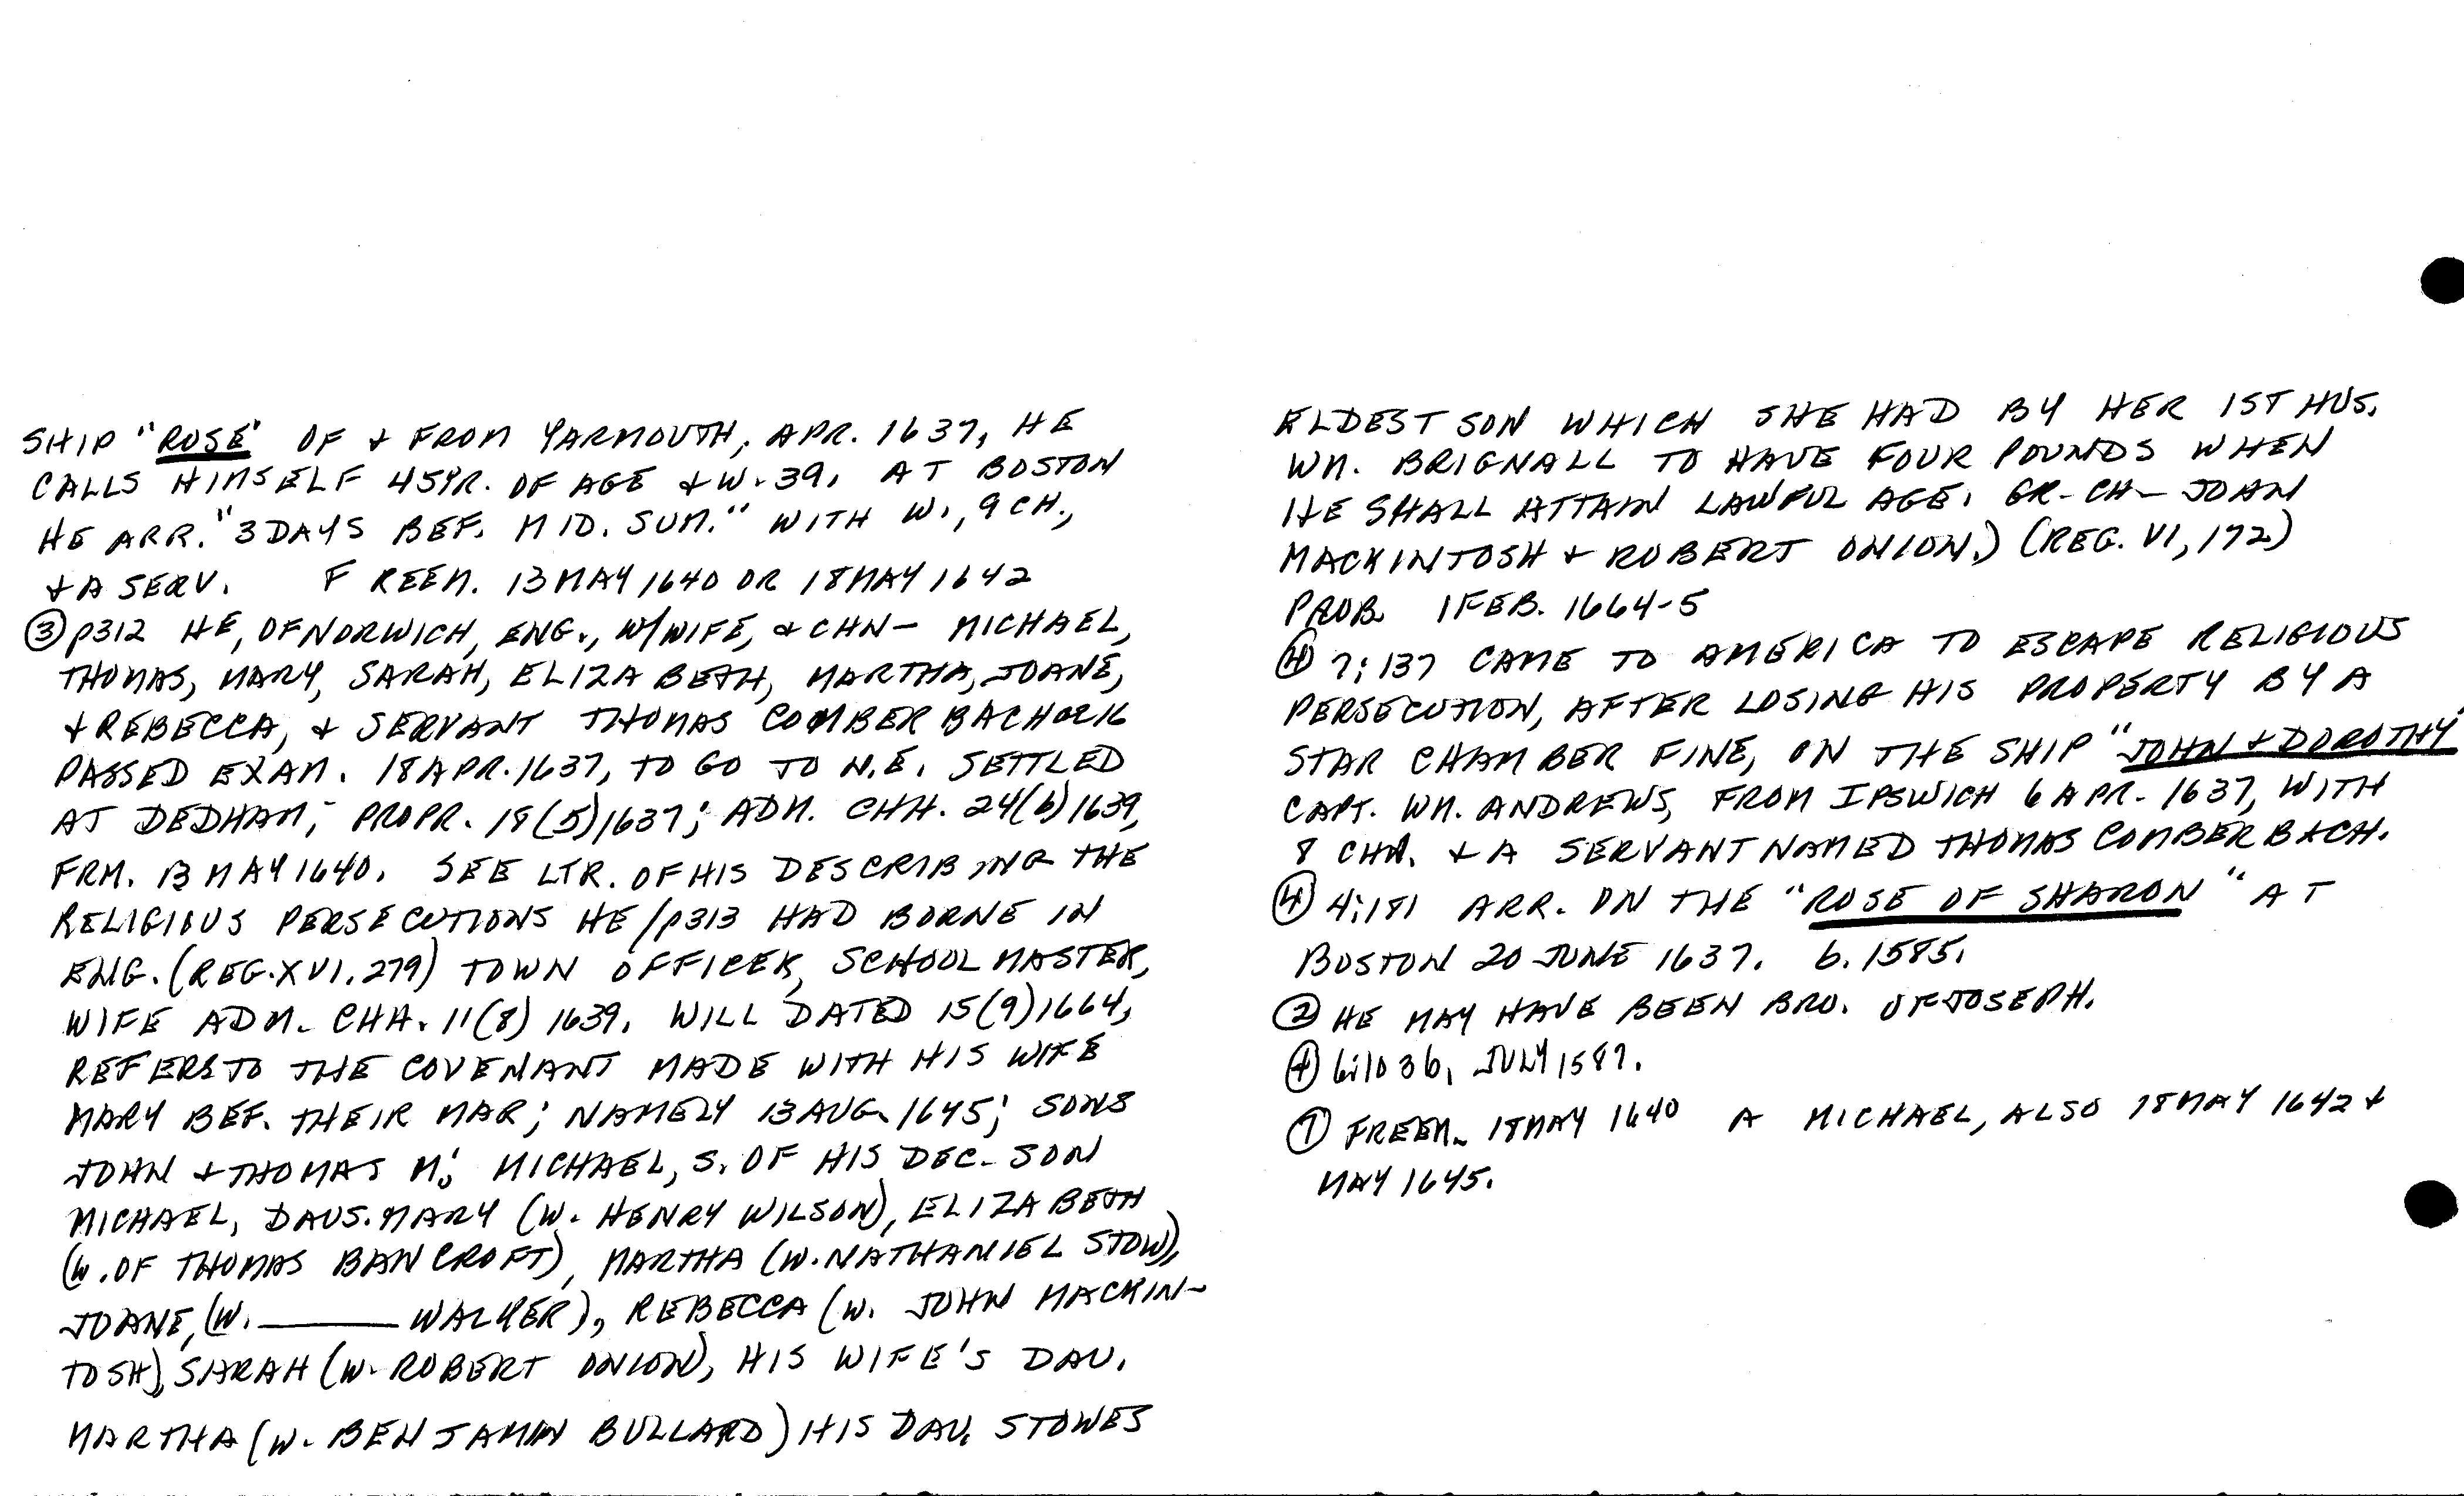 SHIP "ROSE" OF + FROM YARMOUTH, APR. 1637, HE
CALLS HIMSELF 45YR. OF AGE + W. 39. AT BOSTON
HE ARR. "3 DAYS BEF. MID. SUM." WITH W., 9 CH.,
+ A SERV. FREEM. 13 MAY 1640 OR 18 MAY 1642
③ p312 HE, OF NORWICH, ENG., W/WIFE, & CHN— MICHAEL,
THOMAS, MARY, SARAH, ELIZABETH, MARTHA, JOANE,
+ REBECCA, + SERVANT THOMAS COMBERBACH 16
PASSED EXAM. 18 APR. 1637, TO GO TO N.E. SETTLED
AT DEDHAM; PROPR. 18(5)1637; ADM. CHH. 24(6)1639,
FRM. 13 MAY 1640. SEE LTR. OF HIS DESCRIBING THE
RELIGIOUS PERSECUTIONS HE /p313 HAD BORNE IN
ENG. (REG. XVI. 279) TOWN OFFICER, SCHOOL MASTER,
WIFE ADM. CHH. 11(8) 1639. WILL DATED 15(9)1664,
REFERS TO THE COVENANT MADE WITH HIS WIFE
MARY BEF. THEIR MAR; NAMELY 13 AUG. 1645; SONS
JOHN + THOMAS M; MICHAEL, S. OF HIS DEC. SON
MICHAEL, DAUS. MARY (W. HENRY WILSON), ELIZABETH
(W. OF THOMAS BANCROFT), MARTHA (W. NATHANIEL STOW),
JOANE, (W. ______ WALKER), REBECCA (W. JOHN MACKIN-
TOSH), SARAH (W. ROBERT ONION), HIS WIFE'S DAU.
MARTHA (W. BENJAMIN BULLARD) HIS DAU. STOWES
ELDEST SON WHICH SHE HAD BY HER 1ST HUS.
WM. BRIGNALL TO HAVE FOUR POUNDS WHEN
HE SHALL ATTAIN LAWFUL AGE. GR-CH— JOAN
MACKINTOSH + ROBERT ONION.) (REG. VI, 172)
PROB. 1 FEB. 1664-5
④ 7:137 CAME TO AMERICA TO ESCAPE RELIGIOUS
PERSECUTION, AFTER LOSING HIS PROPERTY BY A
STAR CHAMBER FINE, ON THE SHIP "JOHN + DOROTHY"
CAPT. WM. ANDREWS, FROM IPSWICH 6 APR. 1637, WITH
8 CHN. + A SERVANT NAMED THOMAS COMBERBACH.
④ 4:181 ARR. ON THE "ROSE OF SHARON" AT
BOSTON 20 JUNE 1637. b. 1585.
② HE MAY HAVE BEEN BRO. OF JOSEPH.
④ 6:10 JULY 1587.
① FREEM. 18 MAY 1640 A MICHAEL, ALSO 18 MAY 1642 +
MAY 1645.